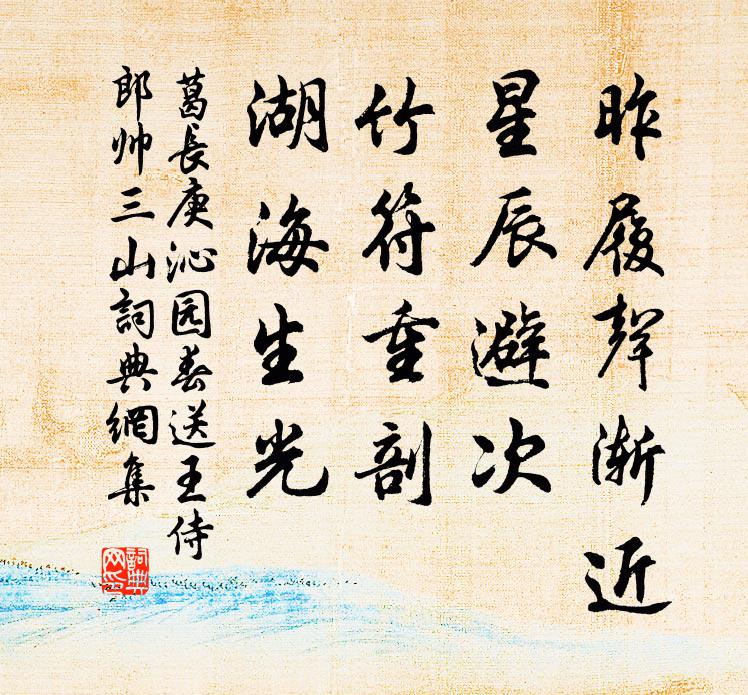 昨履聲漸近
星辰避次
竹符重剖
湖海生光
葛長庚沁园春送王侍
郎帅三山詞典網集
詞典
网